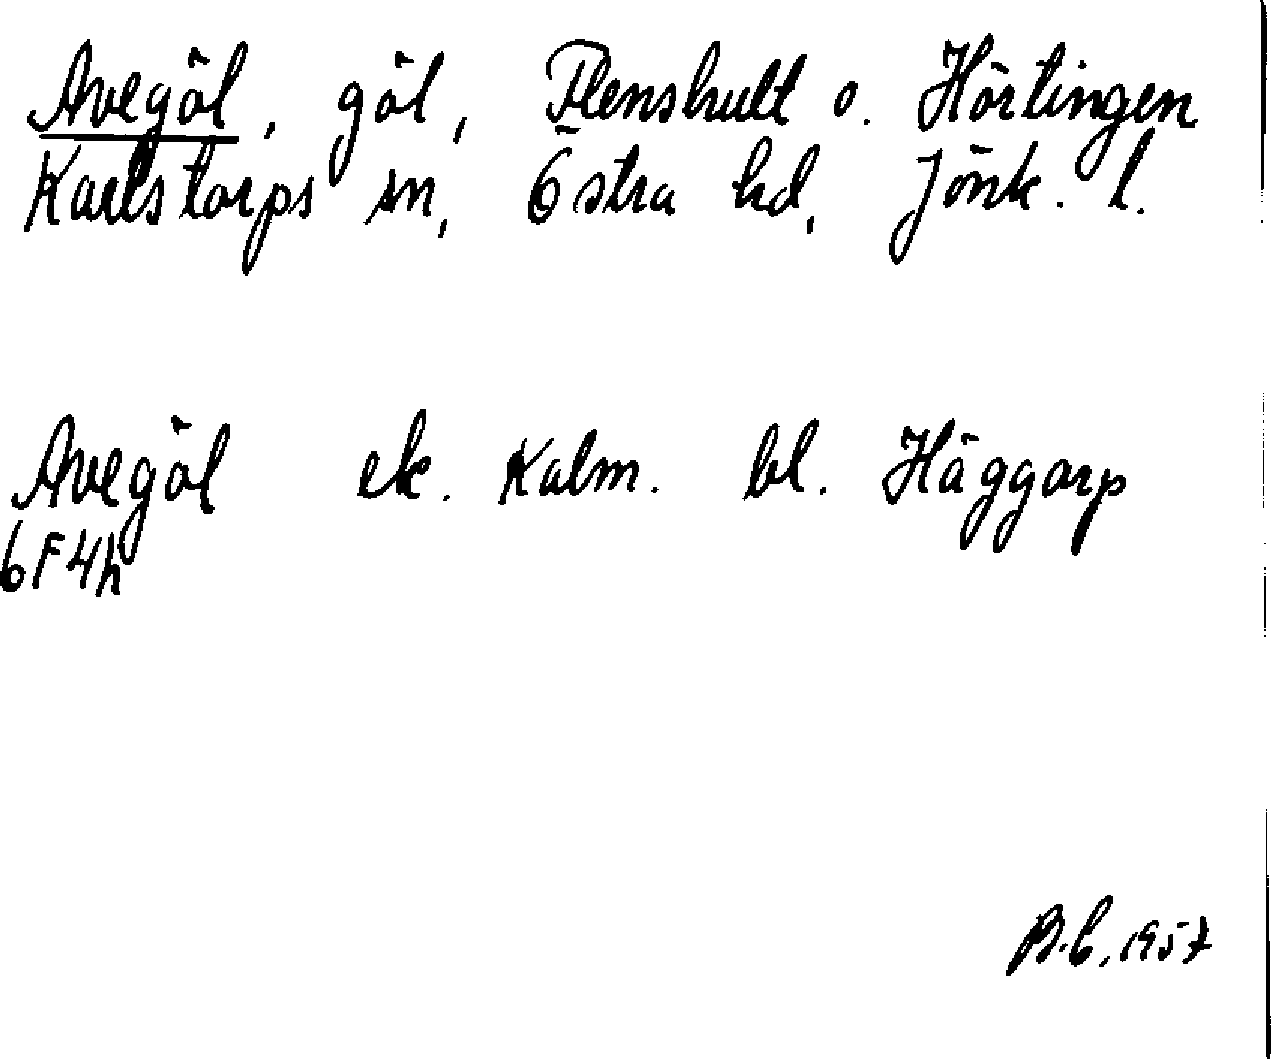 Avegöl, göl, Flenshult o. Hörtingen
Karlstorps sn, Östra hd, Jönk. l.
Avegöl ek. Kalm. bl. Häggarp
6F4h
B.C, 1957